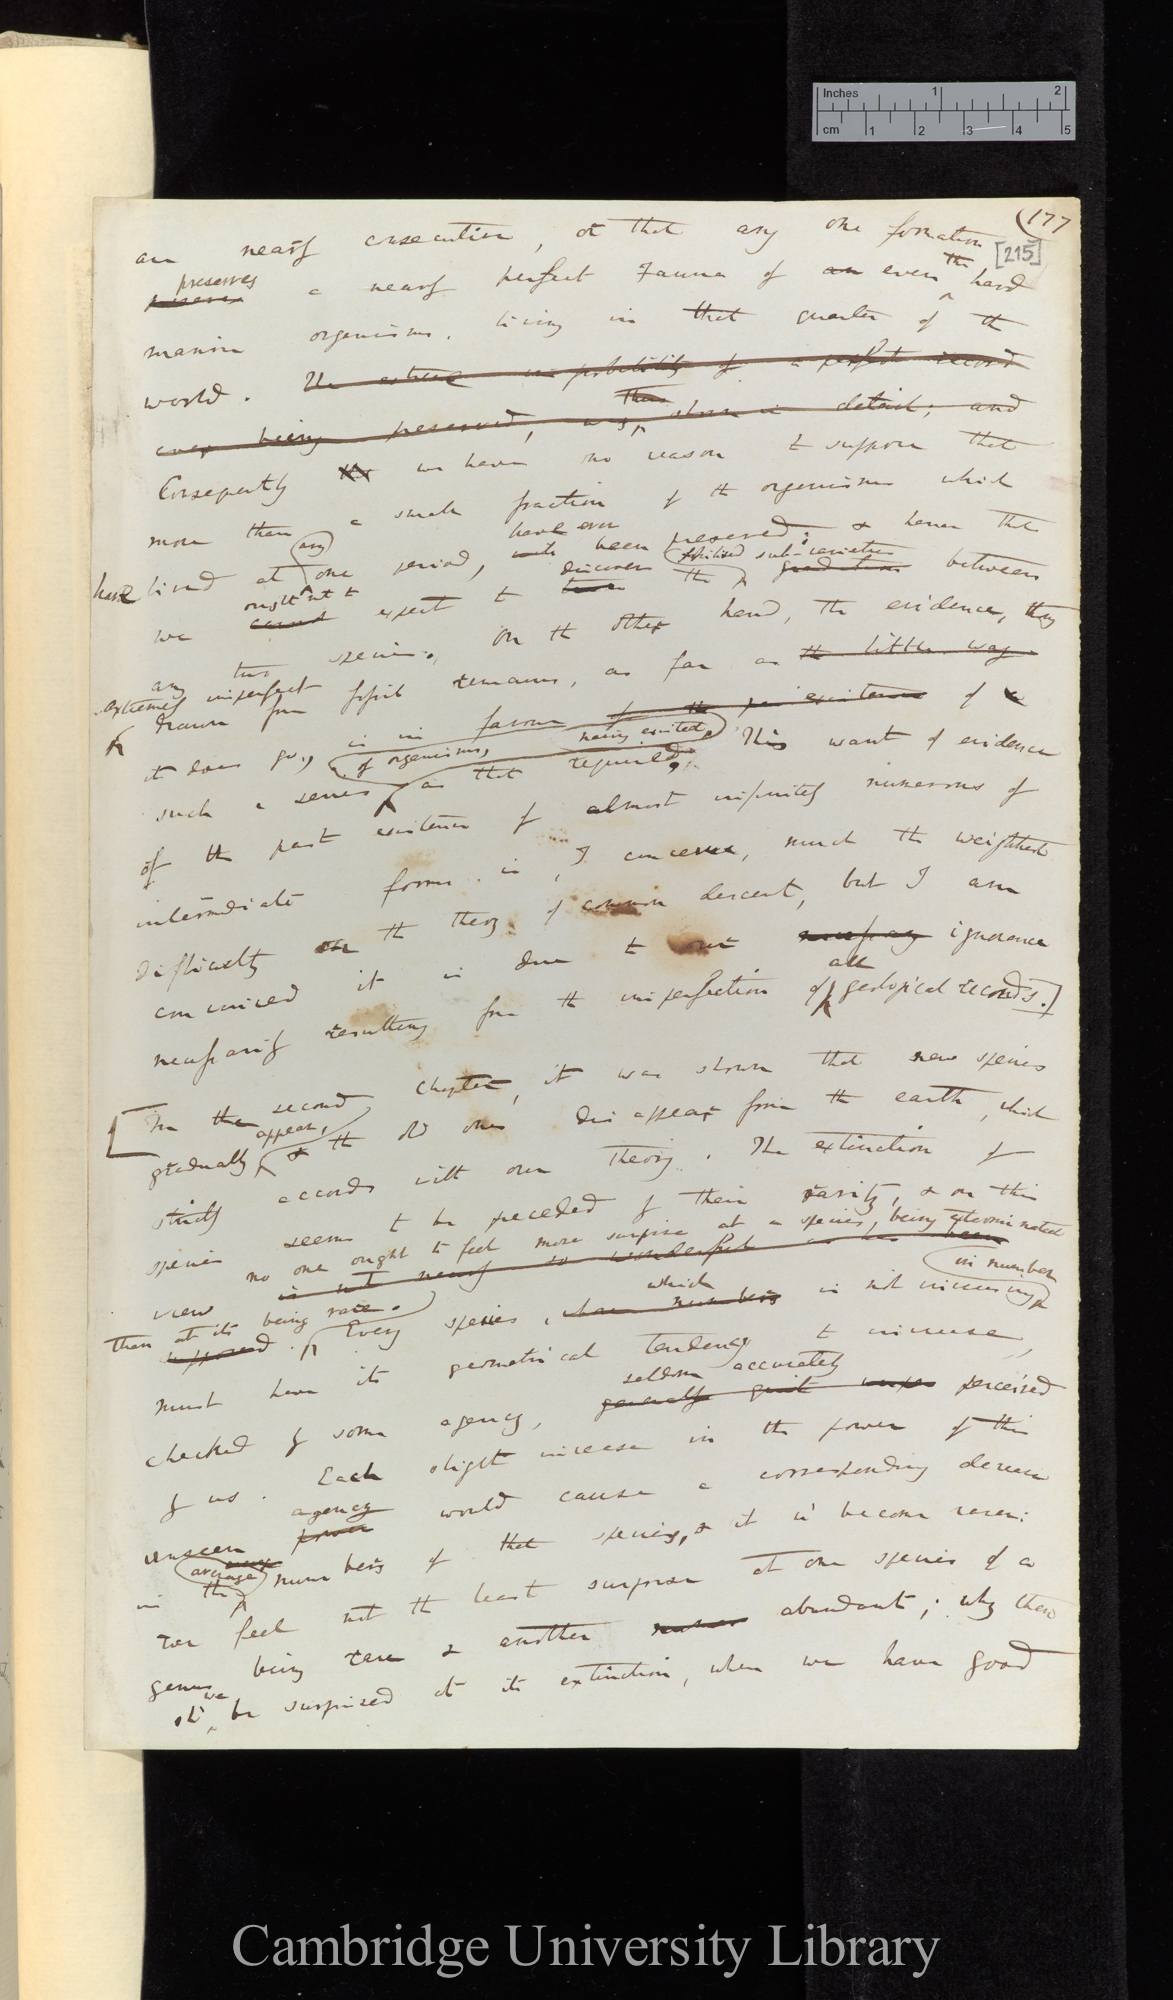 (177
[215]
are nearly consecutive, or that any one formation
preserves
preserves a nearly perfect Fauna of an even the hard
marine organisms, living in that quarter of the
world. The extreme improbability of a perfect record
ever being preserved, was, then shown in detail; and
Consequently we have no reason to suppose that
more than a small fraction of the organisms which
have lived at any one period, have ever been preserved; & hence that
we ought not to cannot expect to discover the fossilised sub-varieties gradations between
any two species. On the other hand, the evidence, tho
extremely imperfect
drawn from fossil remains, as far as the little way
it does go, is in favour of the pre existence of
such a series of organisms, having existed, as that required; This want of evidence
of the past existence of almost infinitely numerous
intermediate forms, is, I conceive, much the weightiest
difficulty on the theory of common descent, but I am
convinced it is due to our necessary ignorance
necessarily resulting from the imperfection of all geological records.]
[In the second chapter, it was shown that new species
gradually appear, & the old ones disappear from the earth, which
strictly accords with our Theory. The extinction of
species seems to be preceded by their rarity, & on this
view no one ought to feel more surprise at a species, being exterminated
is not nearly so wonderful as has been
than at its being rare.
supposed. Every species, which whose numbers is not increasing in number
must have its geometrical tendency to increase,
checked by some agency, seldom accurately generally perceived
by us. Each slight increase in the power of this
unseen agency power would cause a corresponding decrease
in the average numbers of that species, & it wd become rarer:
we feel not the least surprise at one species of a
genus being rare & another abundant; why then
shd we be surprised at its extinction, when we have good
Inches 1 2
cm 1 2 3 4 5
Cambridge University Library